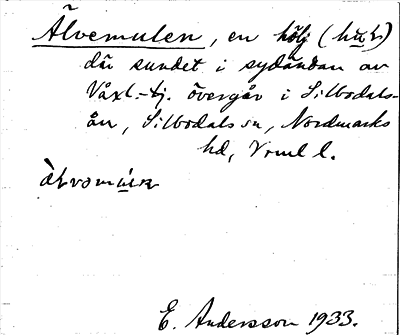 Älvemulen, en hölj
där sundet i sydändan av
Växl.-tj. övergår i Silbodals-
ån, Silbodals sn, Nordmarks
hd, Vrml l.
E. Andersson 1933.